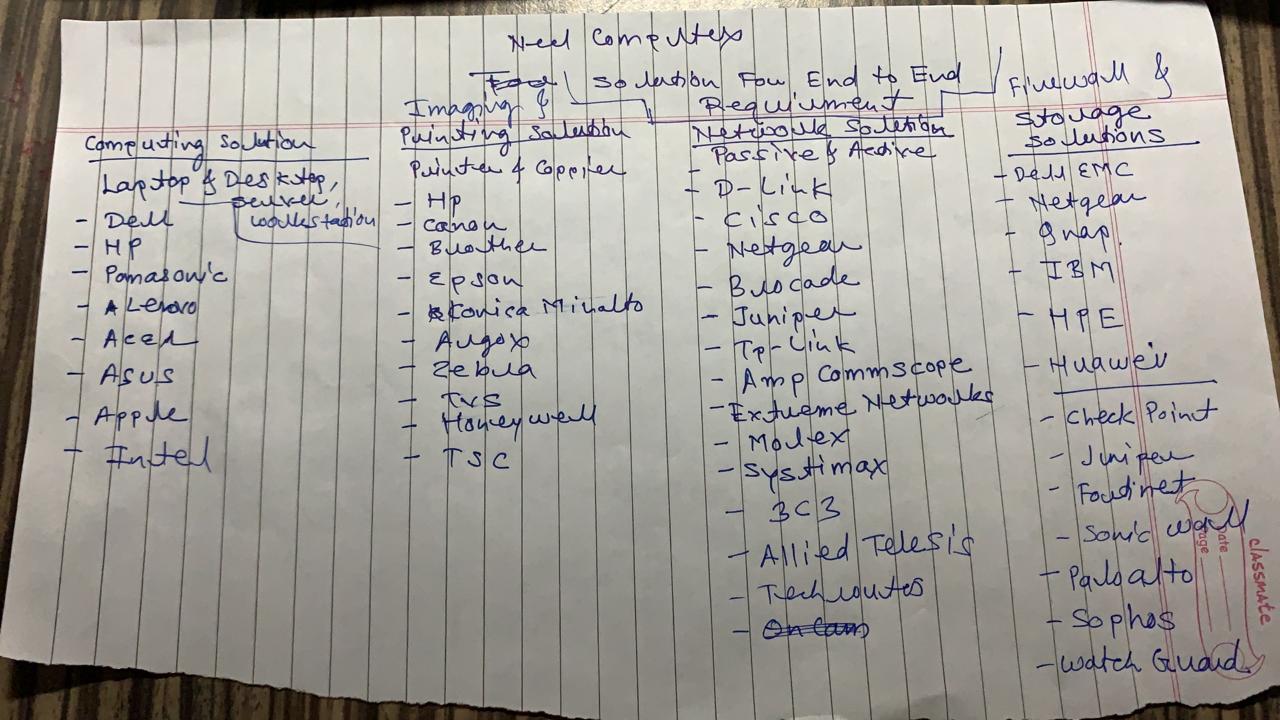 Need Computers
Solution For End to End
Requirment
Computing Solution
Laptop & Desktop,
Server,
Workstation
- Dell
- HP
- Panasonic
- Lenovo
- Acer
- Asus
- Apple
- Intel
Imaging &
Printing Solution
Printer & Coppier
- Hp
- Canon
- Brother
- Epson
- Konica Minalto
- Argox
- Zebra
- TVS
- Honeywell
- TSC
Network Solution
Passive & Active
- D-Link
- Cisco
- Netgear
- Brocade
- Juniper
- Tp-Link
- Amp Commscope
- Extreme Networks
- Molex
- Systimax
- 3C3
- Allied Telesis
- Techroutes
Firewall &
Storage
Solutions
- Dell EMC
- Netgear
- Qnap
- IBM
- HPE
- Huawei
- Check Point
- Juniper
- Fortinet
- Sonic Wall
- Paloalto
- Sophos
- Watch Guard
CLASSMATE
Date
Page